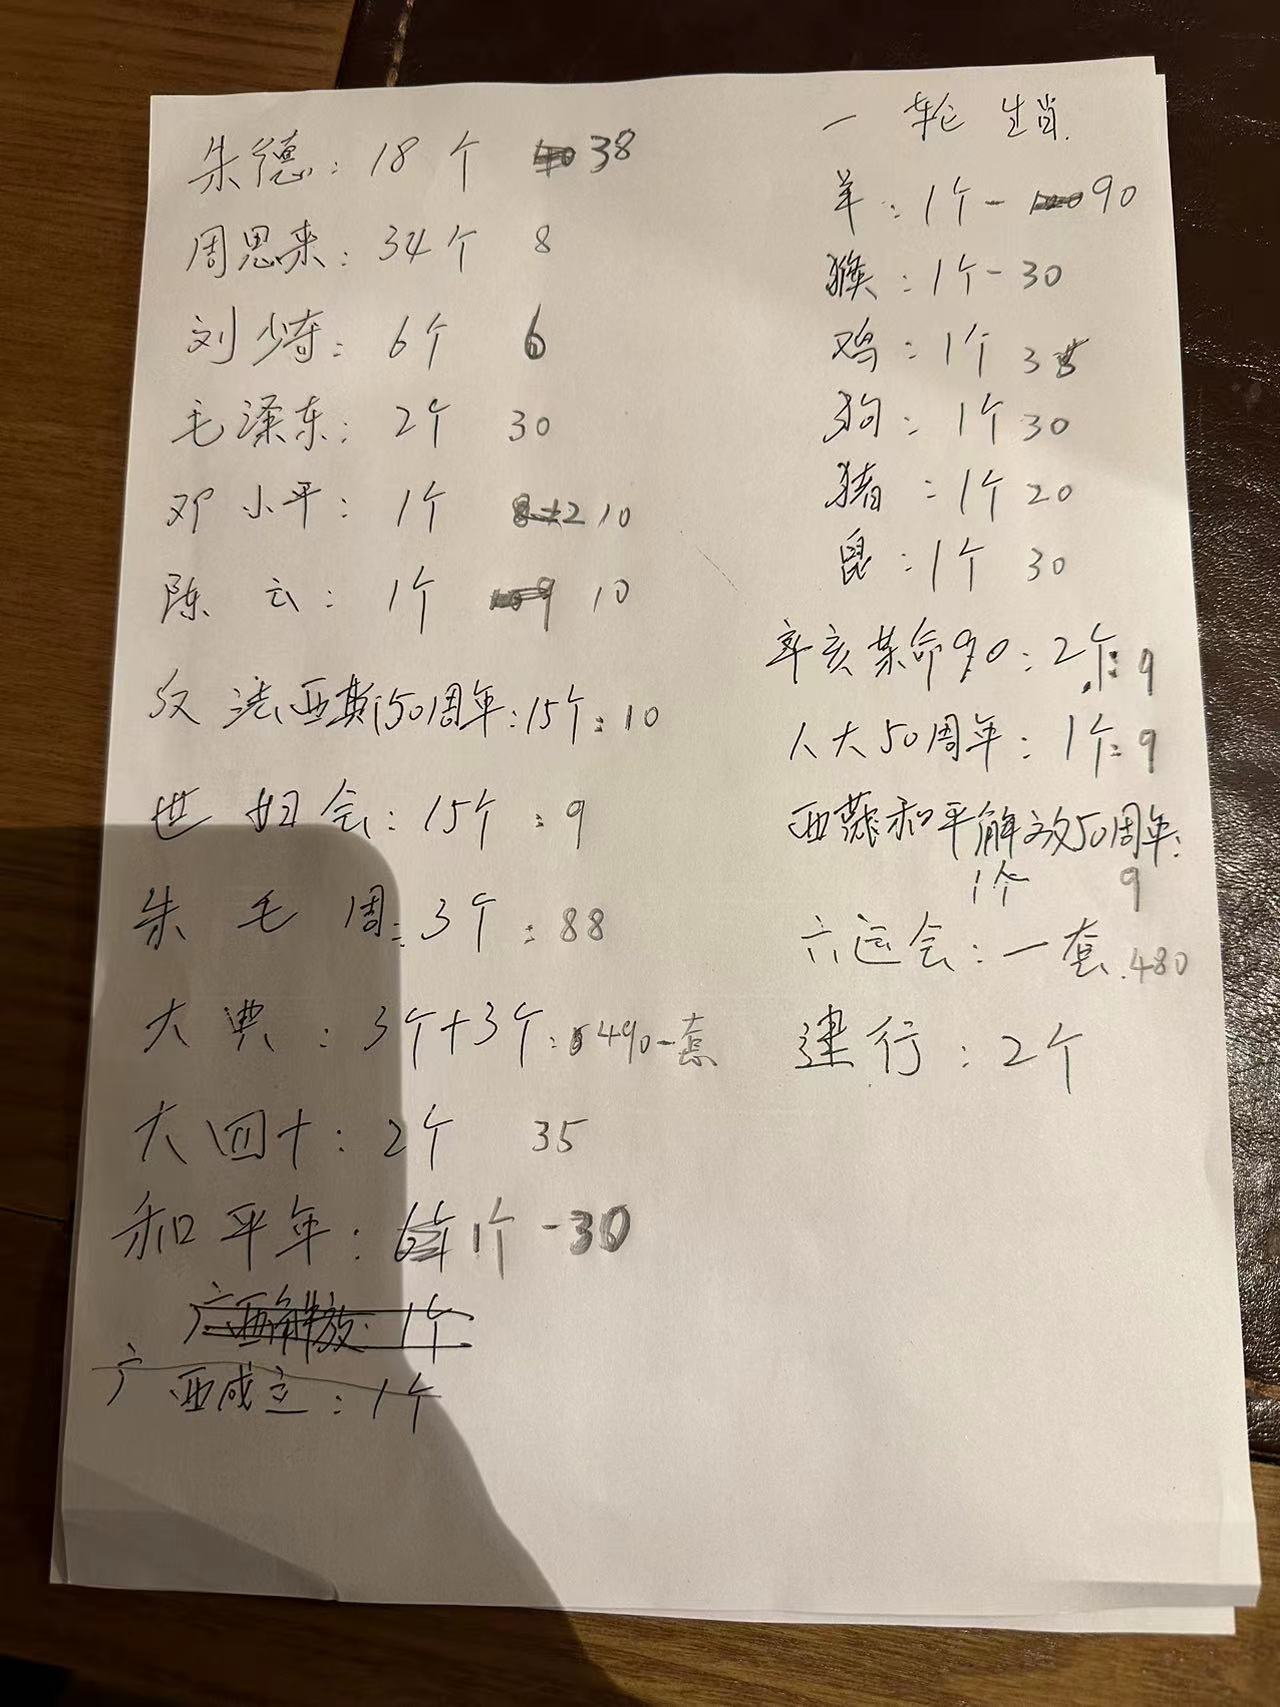 朱德：18个 38
周恩来：34个 8
刘少奇：6个 6
毛泽东：2个 30
邓小平：1个 10
陈云：1个 10
反法西斯50周年：15个：10
世妇会：15个：9
朱毛周：3个：88
大典：3个+3个：490一套
大四十：2个 35
和平年：1个-30
广西解放：1个
广西成立：1个
一轮生肖
羊：1个-90
猴：1个-30
鸡：1个 35
狗：1个 30
猪：1个 20
鼠：1个 30
辛亥革命90：2个：9
人大50周年：1个：9
西藏和平解放50周年：
1个 9
六运会：一套.480
建行：2个